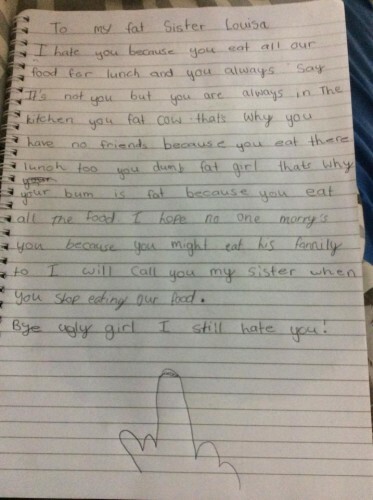 To my fat Sister Louisa
I hate you because you eat all our
food for lunch and you always say
It's not you but you are always in The
kitchen you fat cow thats why you
have no friends because you eat there
lunch too you dumb fat girl thats why
your bum is fat because you eat
all the food I hope no one marry's
you because you might eat his family
to I will call you my sister when
you stop eating our food.
Bye ugly girl I still hate you!